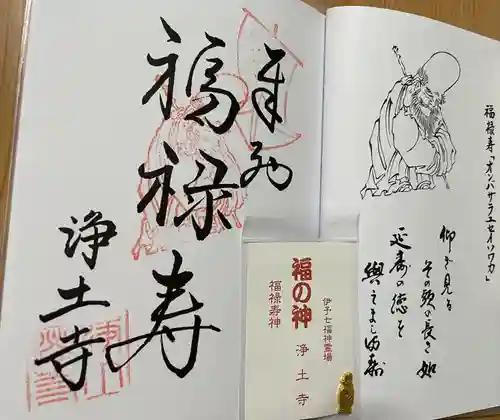 福禄寿「オンバサラユセイソワカ」
仰ぎ見る
その頭の長さ如
延寿の徳を
与えまし給ふ
奉拝
福禄寿
浄土寺
伊予七福神霊場
福の神 浄土寺
福禄寿神